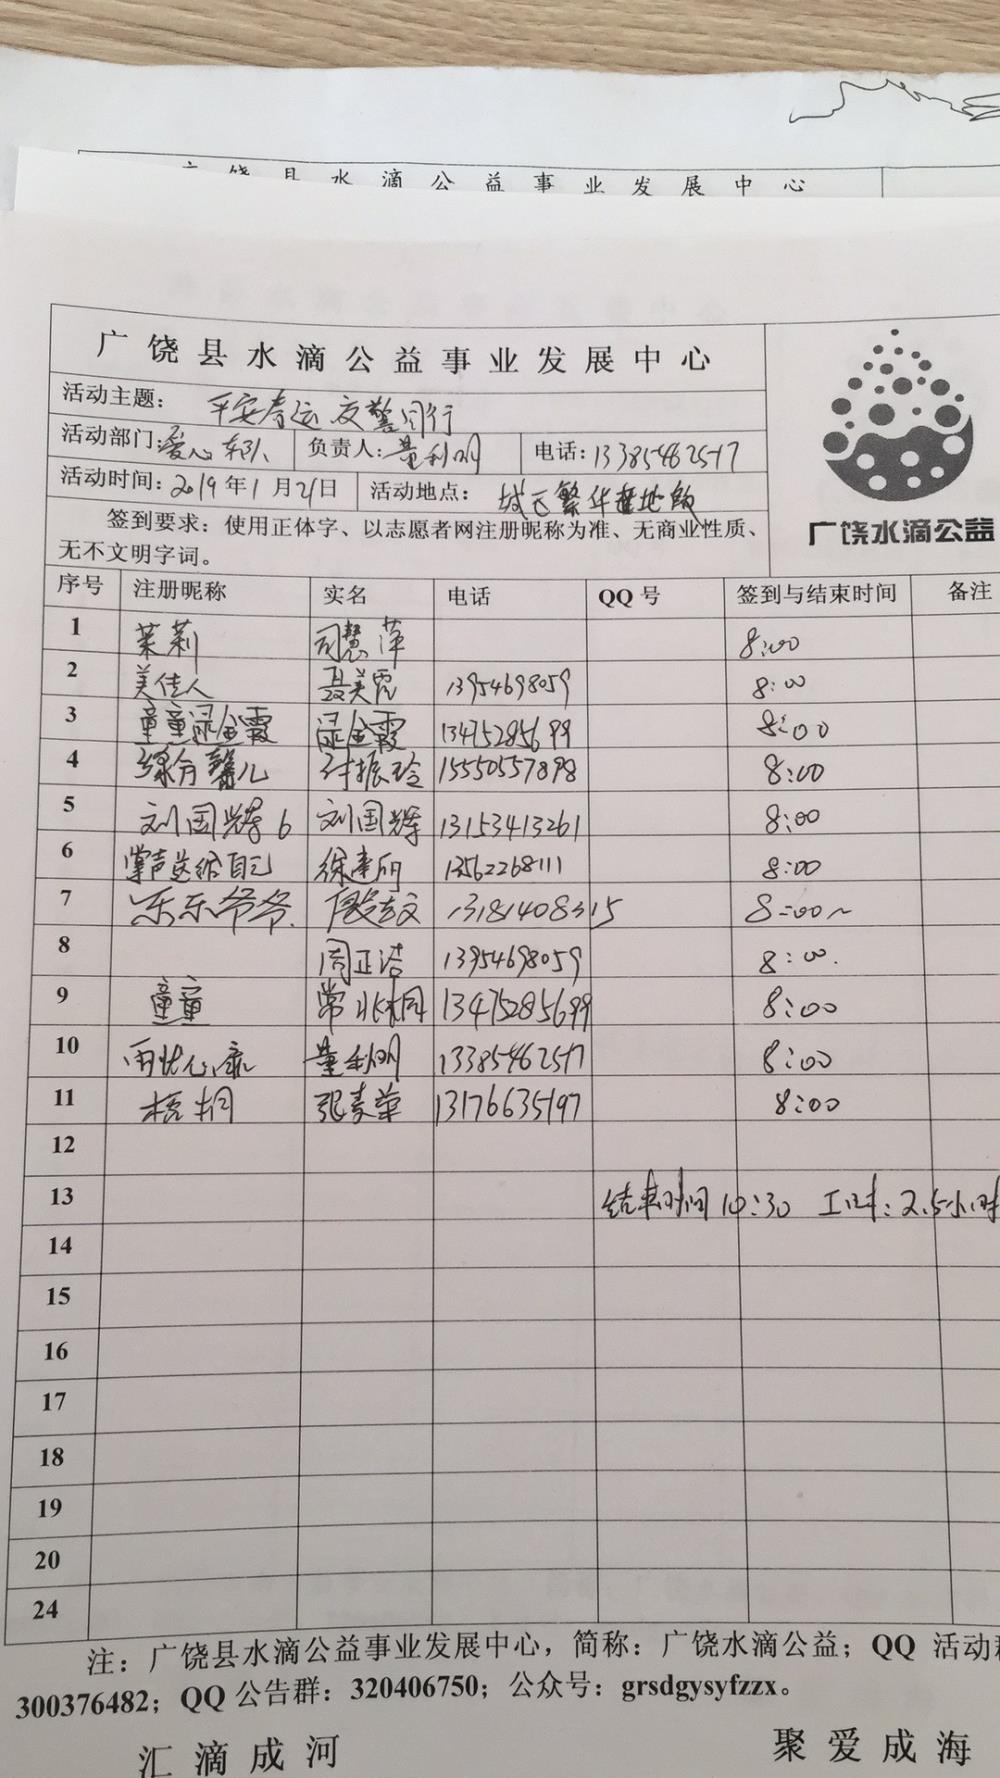 广饶县水滴公益事业发展中心
广饶县水滴公益事业发展中心
活动主题： 平安春运 交警同行
活动部门：爱心车队 负责人：董利明 电话：13385462517
活动时间：2019年1月21日 活动地点：
广饶水滴公益
签到要求：使用正体字、以志愿者网注册昵称为准、无商业性质、
无不文明字词。
序号 注册昵称 实名 电话 QQ号 签到与结束时间 备注
1 茉莉 司慧萍 8:00
2 美佳人 聂美霞 13954698059 8:00
3 童童 13475285699 8:00
4 15550557898 8:00
5 刘国辉6 刘国辉 13153413261 8:00
6 掌声送给自己 徐建丽 13562268111 8:00
7 乐乐爷爷. 13181408315 8:00~
8 周正洁 13954698059 8:00.
9 童童 常兆桐 13475285699 8:00
10 董利明 13385462517 8:00
11 梧桐 张春华 13176635197 8:00
12
13 结束时间 10:30 工时：2.5小时
14
15
16
17
18
19
20
24
注：广饶县水滴公益事业发展中心，简称：广饶水滴公益；QQ 活动群
300376482；QQ公告群：320406750；公众号：grsdgysyfzzx。
汇滴成河 聚爱成海